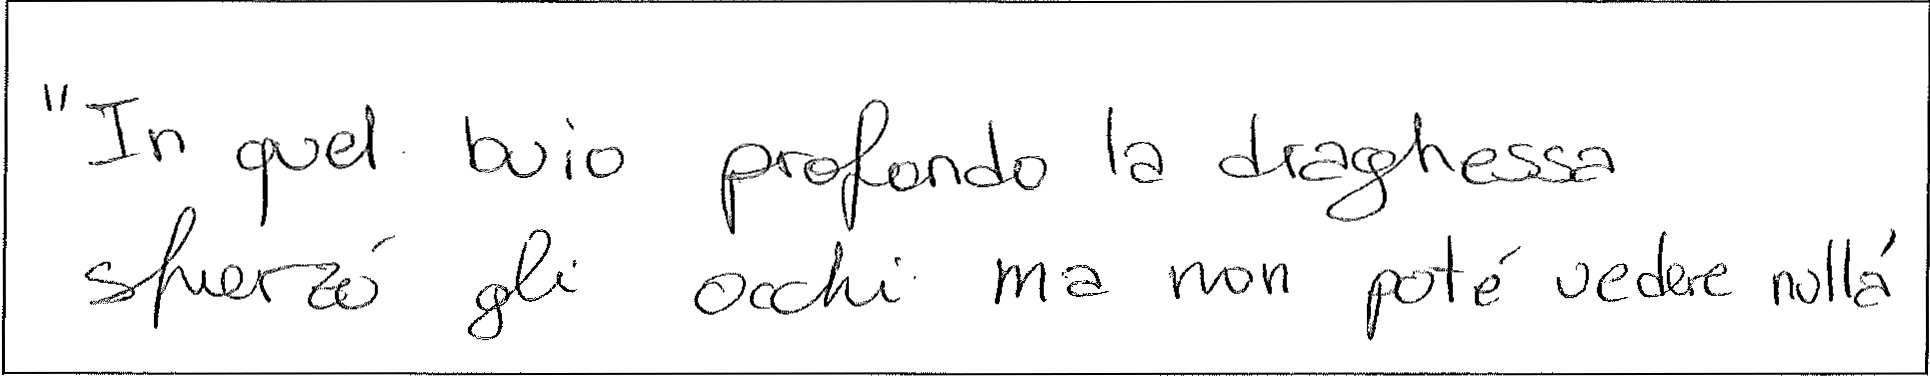 "In quel buio profondo la draghessa
sfuerzó gli occhi ma non poté vedere nulla'